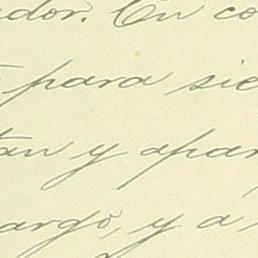 ador. En co
para sie
tan y apar
argo, y a